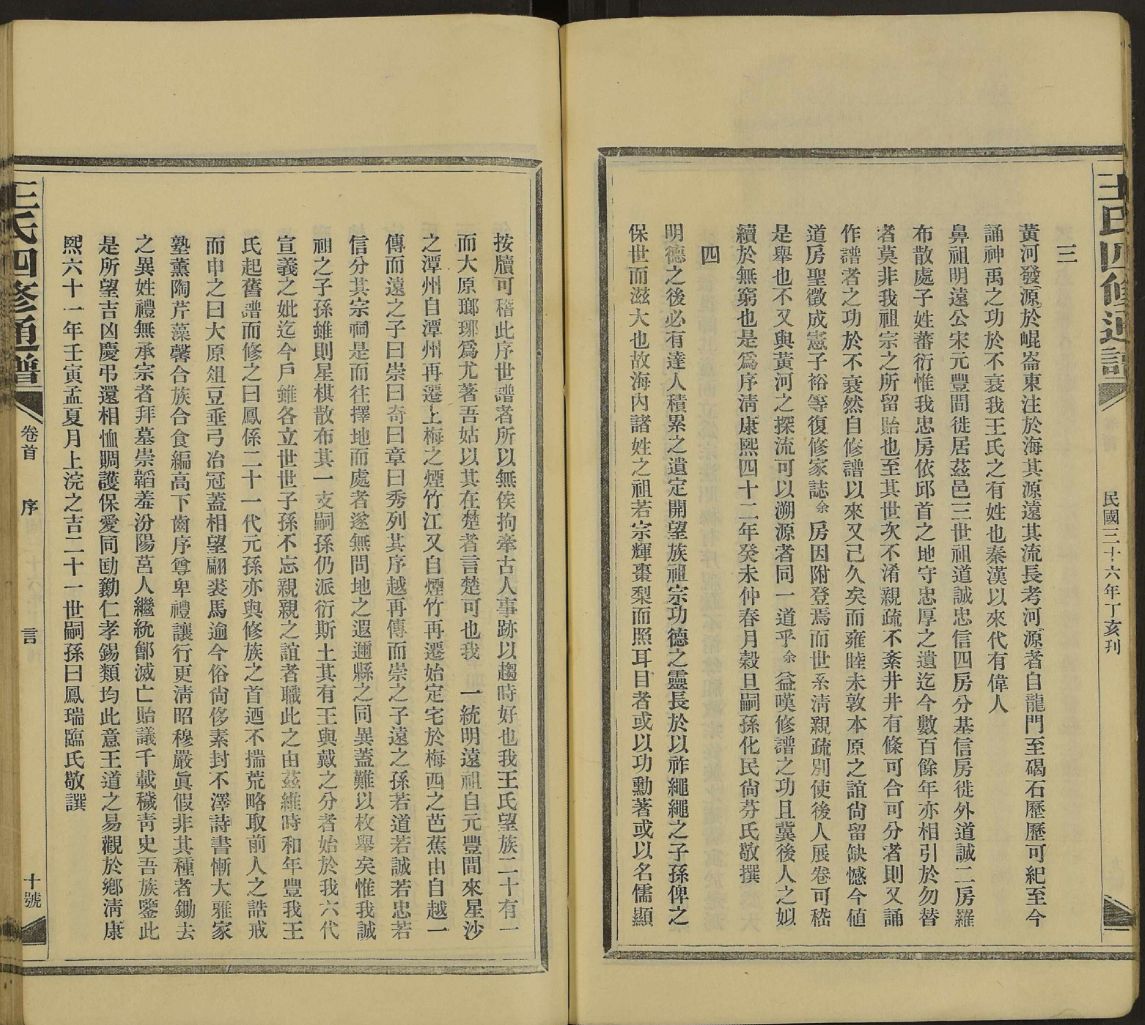 王氏四修通譜
民國三十六年丁亥刊
三
黃河發源於崐崙東注於海其源遠其流長考河源者自龍門至碣石歷歷可紀至今
誦神禹之功於不衰我王氏之有姓也秦漢以來代有偉人
鼻祖明遠公宋元豐間徙居茲邑三世祖道誠忠信四房分基信房徙外道誠二房羅
布散處子姓蕃衍惟我忠房依邱首之地守忠厚之遺迄今數百餘年亦相引於勿替
者莫非我祖宗之所留貽也至其世次不淆親疏不紊井井有條可合可分者則又誦
作譜者之功於不衰然自修譜以來又已久矣而雍睦未敦本原之誼尙留缺憾今値
道房聖徵成憲子裕等復修家誌余房因附登焉而世系淸親疏別使後人展卷可嵇
是舉也不又與黃河之探流可以溯源者同一道乎余益嘆修譜之功且冀後人之姒
續於無窮也是爲序淸康熙四十二年癸未仲春月穀旦嗣孫化民尙芬氏敬撰
四
明德之後必有達人積累之遺定開望族祖宗功德之靈長於以祚繩繩之子孫俾之
保世而滋大也故海內諸姓之祖若宗輝棗梨而照耳目者或以功勳著或以名儒顯
按牘可稽此序世譜者所以無俟拘牽古人事跡以趨時好也我王氏望族二十有一
而大原瑯琊爲尤著吾姑以其在楚者言楚可也我 一統明遠祖自元豐間來星沙
之潭州自潭州再遷上梅之煙竹江又自煙竹再遷始定宅於梅西之芭蕉由自越一
傳而遠之子曰崇曰奇曰章曰秀列其序越再傳而崇之子遠之孫若道若誠若忠若
信分其宗祠是而往擇地而處者遂無問地之遐邇縣之同異蓋難以枚舉矣惟我誠
祖之子孫錐則星棋散布其一支嗣孫仍派衍斯土其有王與戴之分者始於我六代
宣義之妣迄今戶錐各立世世子孫不忘親親之誼者職此之由茲維時和年豐我王
氏起舊譜而修之曰鳳係二十一代元孫亦與修族之首迺不揣荒略取前人之誥戒
而申之曰大原俎豆垂弓冶冠蓋相望翩裘馬逾今俗尙侈素封不澤詩書慚大雅家
塾薰陶芹藻馨合族合食編高下齒序尊卑禮讓行更淸昭穆嚴眞假非其種者鋤去
之異姓禮無承宗者拜墓崇韜羞汾陽莒人繼統鄫滅亡貽議千載穢靑史吾族鑒此
是所望吉凶慶弔還相恤賙護保愛同劻勷仁孝錫類均此意王道之易觀於鄉淸康
熙六十一年壬寅孟夏月上浣之吉二十一世嗣孫曰鳳瑞臨氏敬譔
王氏四修通譜
卷首
序
言
十號